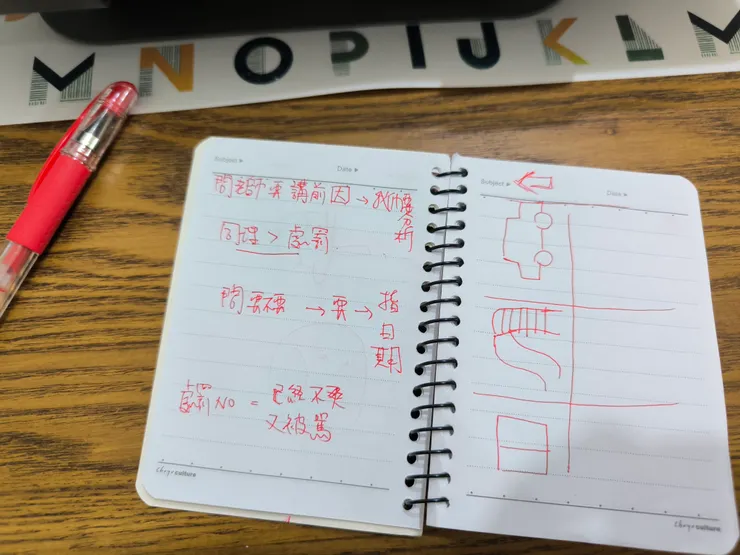 M N O P I J K L M
Subject ▸ Date ▸
問老師要講前因 → 分析
同理 > 處罰
問要不要 → 要 → 指日期
處罰 NO = 已經不爽
又被罵
chuyu culture
Subject ▸ Date ▸
chuyu culture